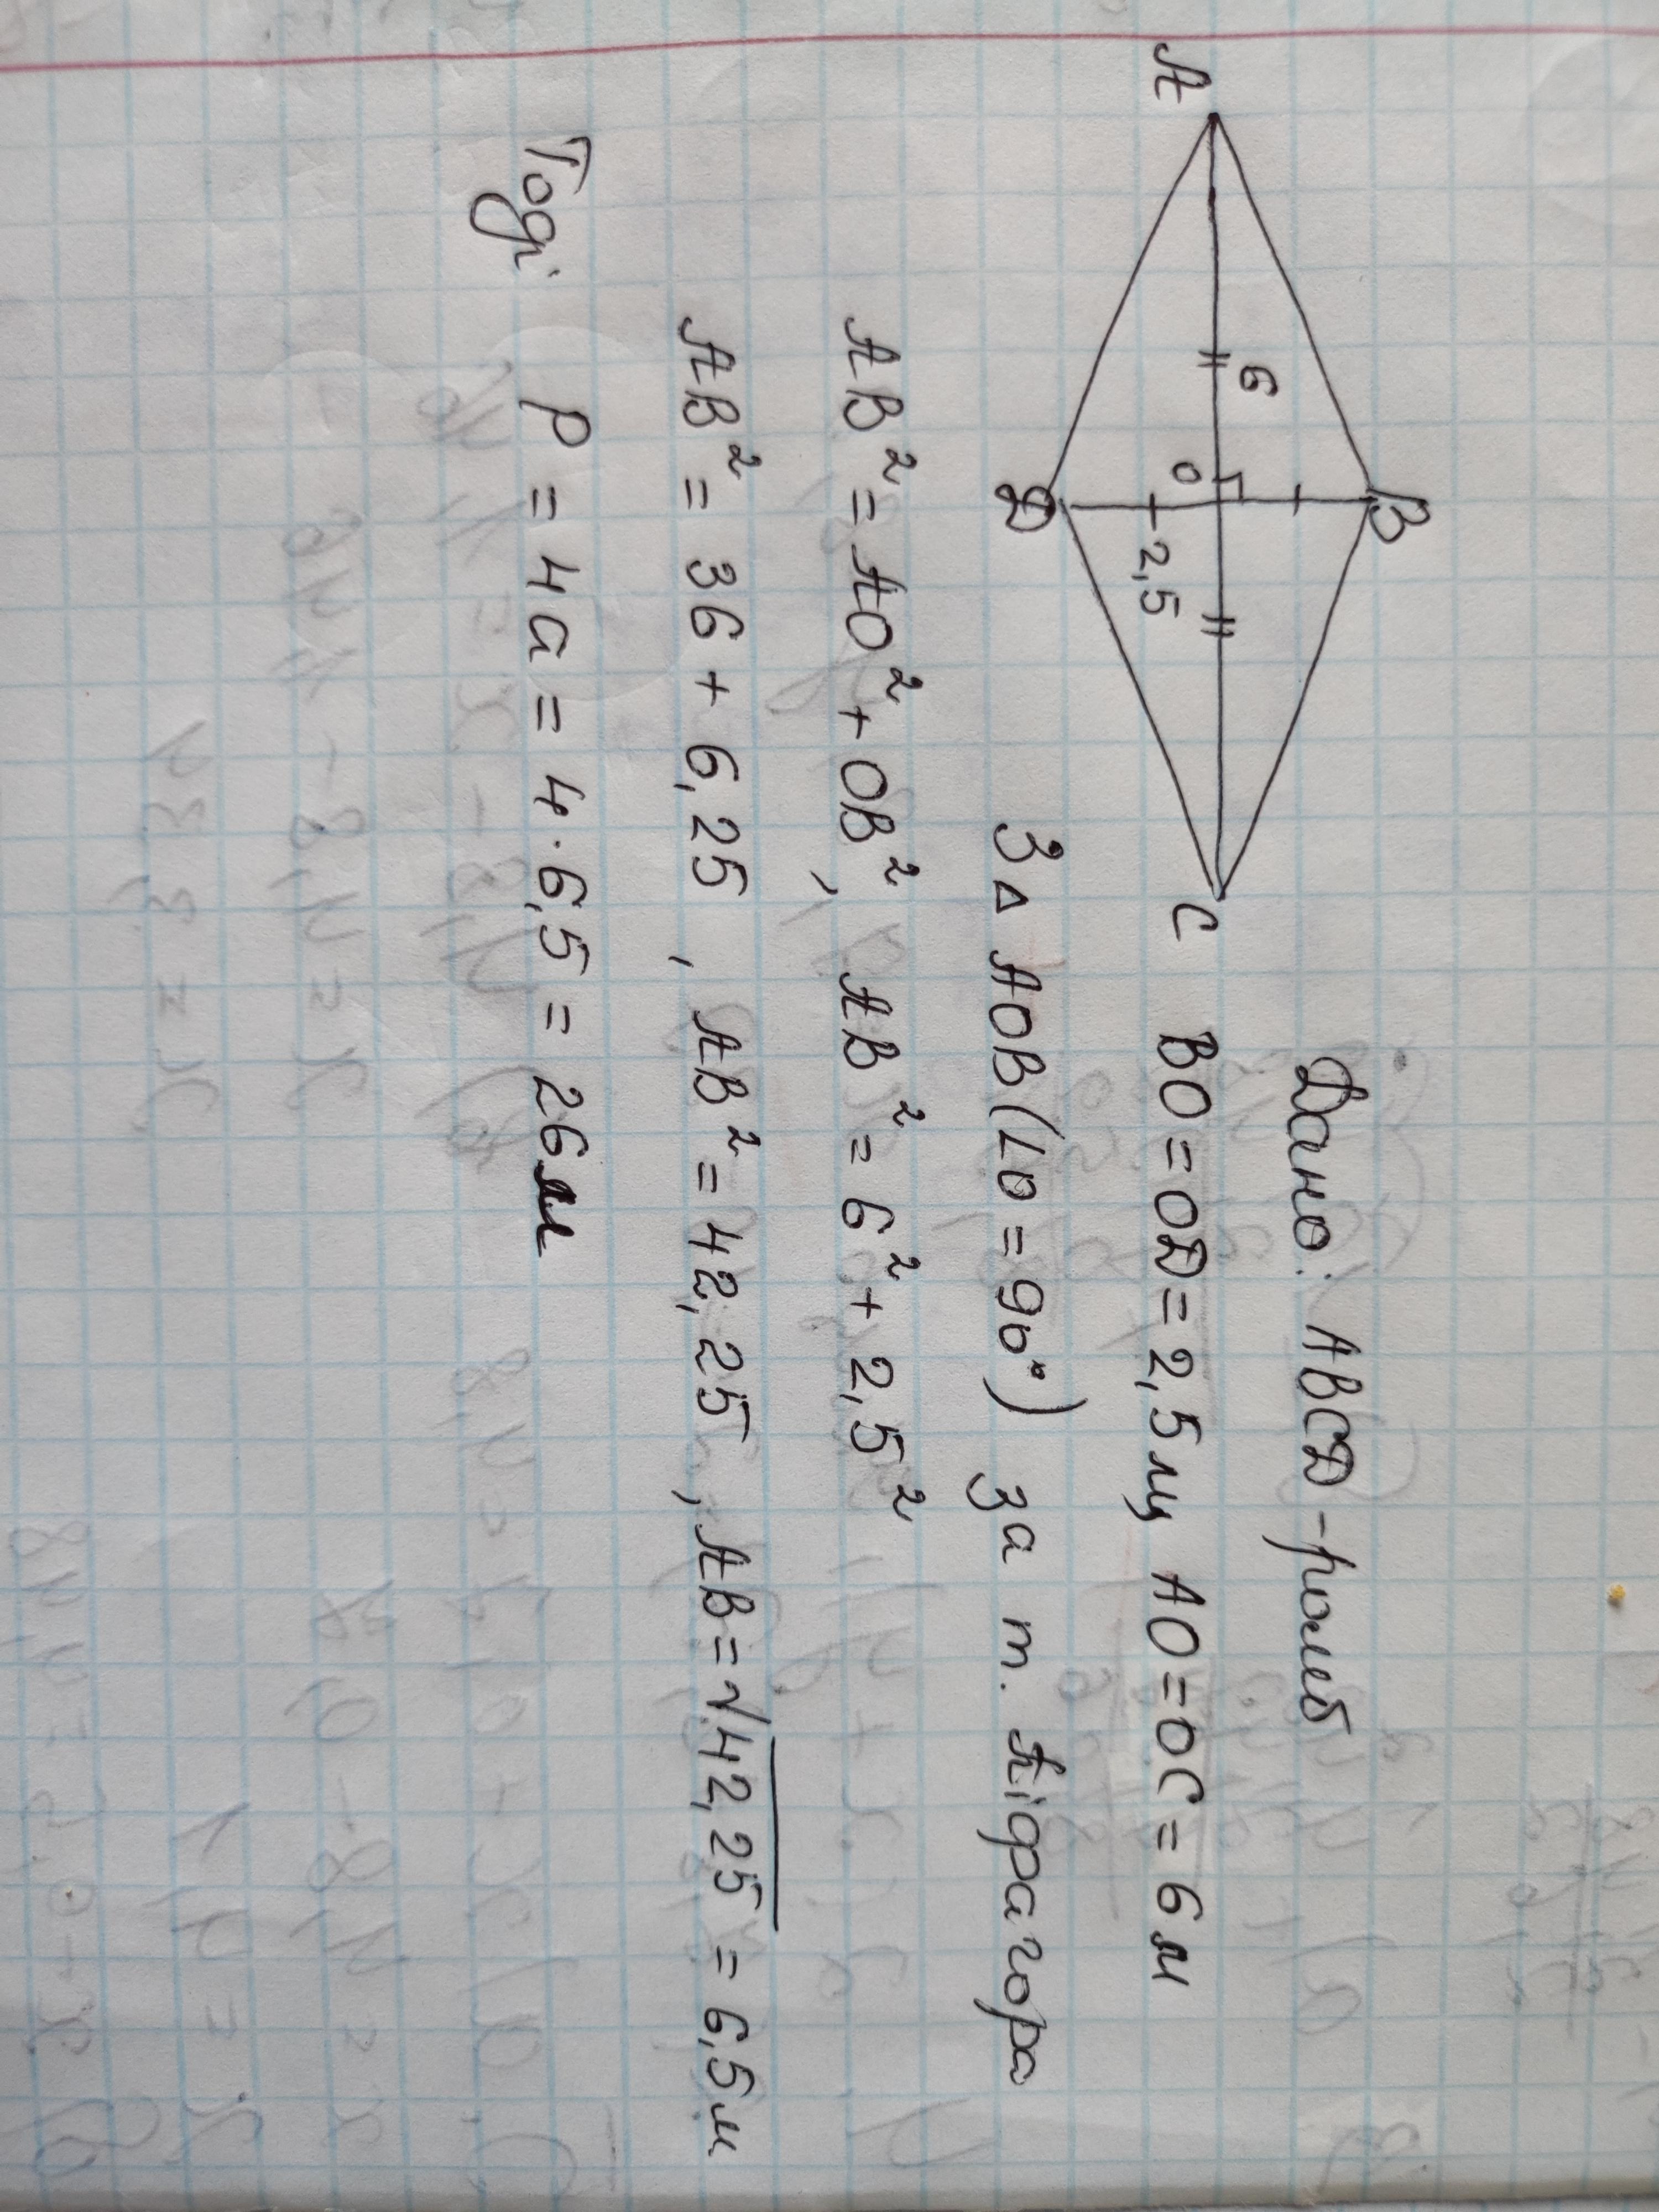 Дано: ABCD - ромб
BO = OD = 2,5 м, AO = OC = 6 м
A
B
C
D
O
6
2,5
З △ AOB (∠O = 90°) за т. Піфагора
AB² = AO² + OB², AB² = 6² + 2,5²
AB² = 36 + 6,25 , AB² = 42,25 , AB = √42,25 = 6,5 м
Тоді P = 4a = 4 · 6,5 = 26 м